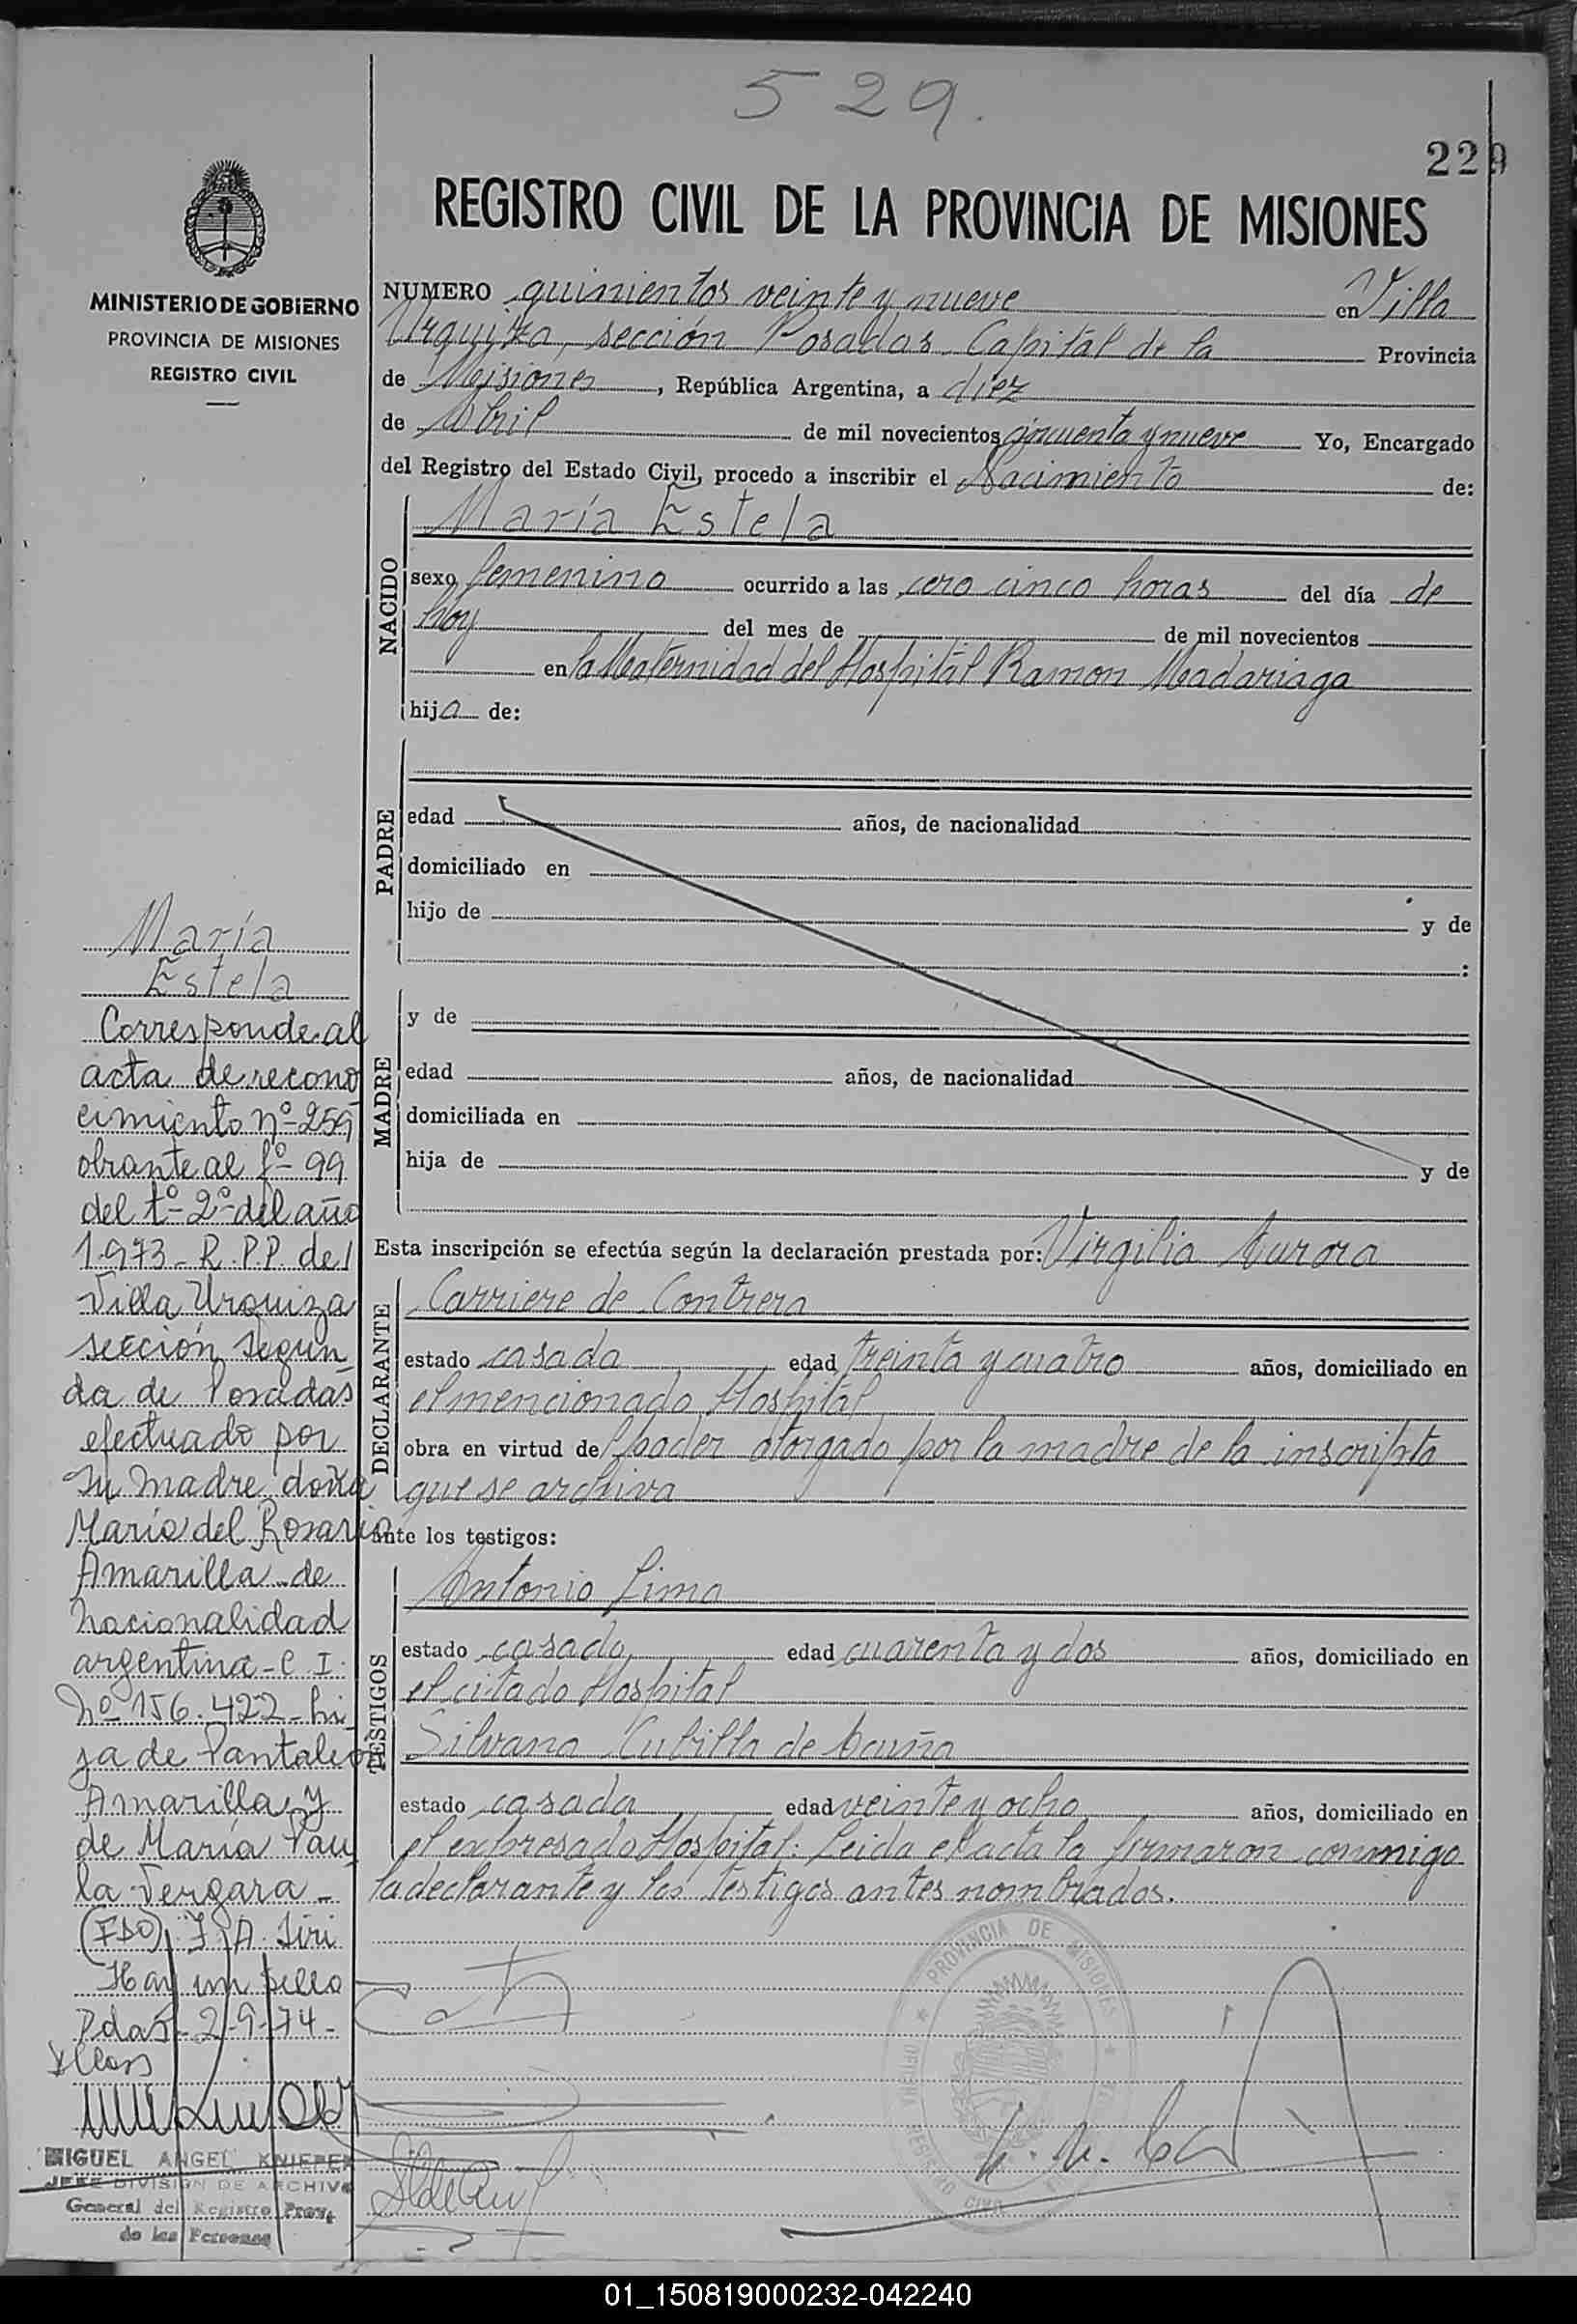 529.
229
REGISTRO CIVIL DE LA PROVINCIA DE MISIONES
MINISTERIO DE GOBIERNO
PROVINCIA DE MISIONES
REGISTRO CIVIL
NUMERO quinientos veinte y nueve en Villa
Urquiza, sección Posadas Capital de la Provincia
de Misiones, República Argentina, a diez
de Abril de mil novecientos cincuenta y nueve Yo, Encargado
del Registro del Estado Civil, procedo a inscribir el Nacimiento de:
NACIDO
María Estela
sexo femenino ocurrido a las cero cinco horas del día de
hoy del mes de de mil novecientos
en la Maternidad del Hospital Ramon Madariaga
hija de:
PADRE
edad años, de nacionalidad
domiciliado en
hijo de y de
:
MADRE
y de
edad años, de nacionalidad
domiciliada en
hija de y de
Esta inscripción se efectúa según la declaración prestada por: Virgilia Aurora
DECLARANTE
Carriere de Contrera
estado casada edad treinta y cuatro años, domiciliado en
el mencionado Hospital
obra en virtud de poder otorgado por la madre de la inscripta
que se archiva
ante los testigos:
TESTIGOS
Antonio Lima
estado casado edad cuarenta y dos años, domiciliado en
el citado Hospital
Silvana Cubilla de Acuña
estado casada edad veinte y ocho años, domiciliado en
el expresado Hospital. Leida el acta la firmaron conmigo
la declarante y los testigos antes nombrados.
María
Estela
Corresponde al
acta de recono
cimiento nº 259
obrante al fº 99
del tº 2º del año
1.973 - R.P.P. de
Villa Urquiza
sección segun
da de Posadas
efectuado por
su madre doña
María del Rosario
Amarilla de
nacionalidad
argentina - C.I.
Nº 156.422 - hi
ja de Pantaleón
Amarilla y
de María Pau
la Vergara -
(FDO) J. A. Siri
Hay un sello
Pdas - 2-9-74 -
MIGUEL ANGEL KNIEPER
JEFE DIVISION DE ARCHIVO
General del Registro Prov.
de las Personas
PROVINCIA DE MISIONES
REGISTRO CIVIL
01_150819000232-042240